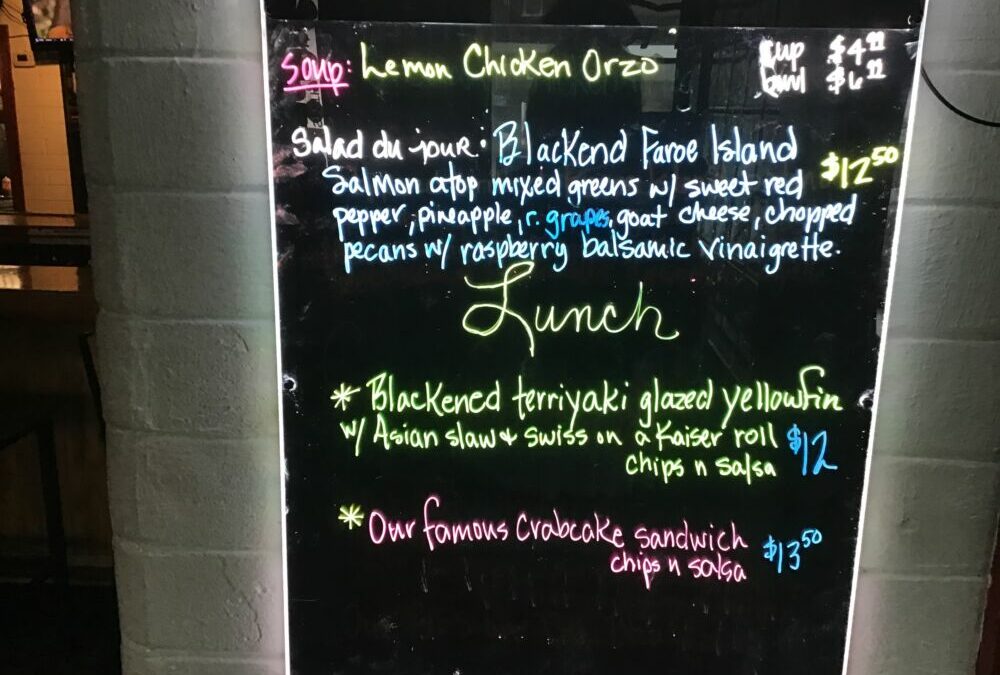 Soup: Lemon Chicken Orzo cup $4.99
bowl $6.99
Salad du jour: Blackend Faroe Island
Salmon atop mixed greens w/ sweet red $12.50
pepper, pineapple, r. grapes, goat cheese, chopped
pecans w/ raspberry balsamic vinaigrette.
Lunch
* Blackened terriyaki glazed yellowfin
w/ Asian slaw & swiss on a Kaiser roll $12
chips n salsa
* Our famous crabcake sandwich $13.50
chips n salsa